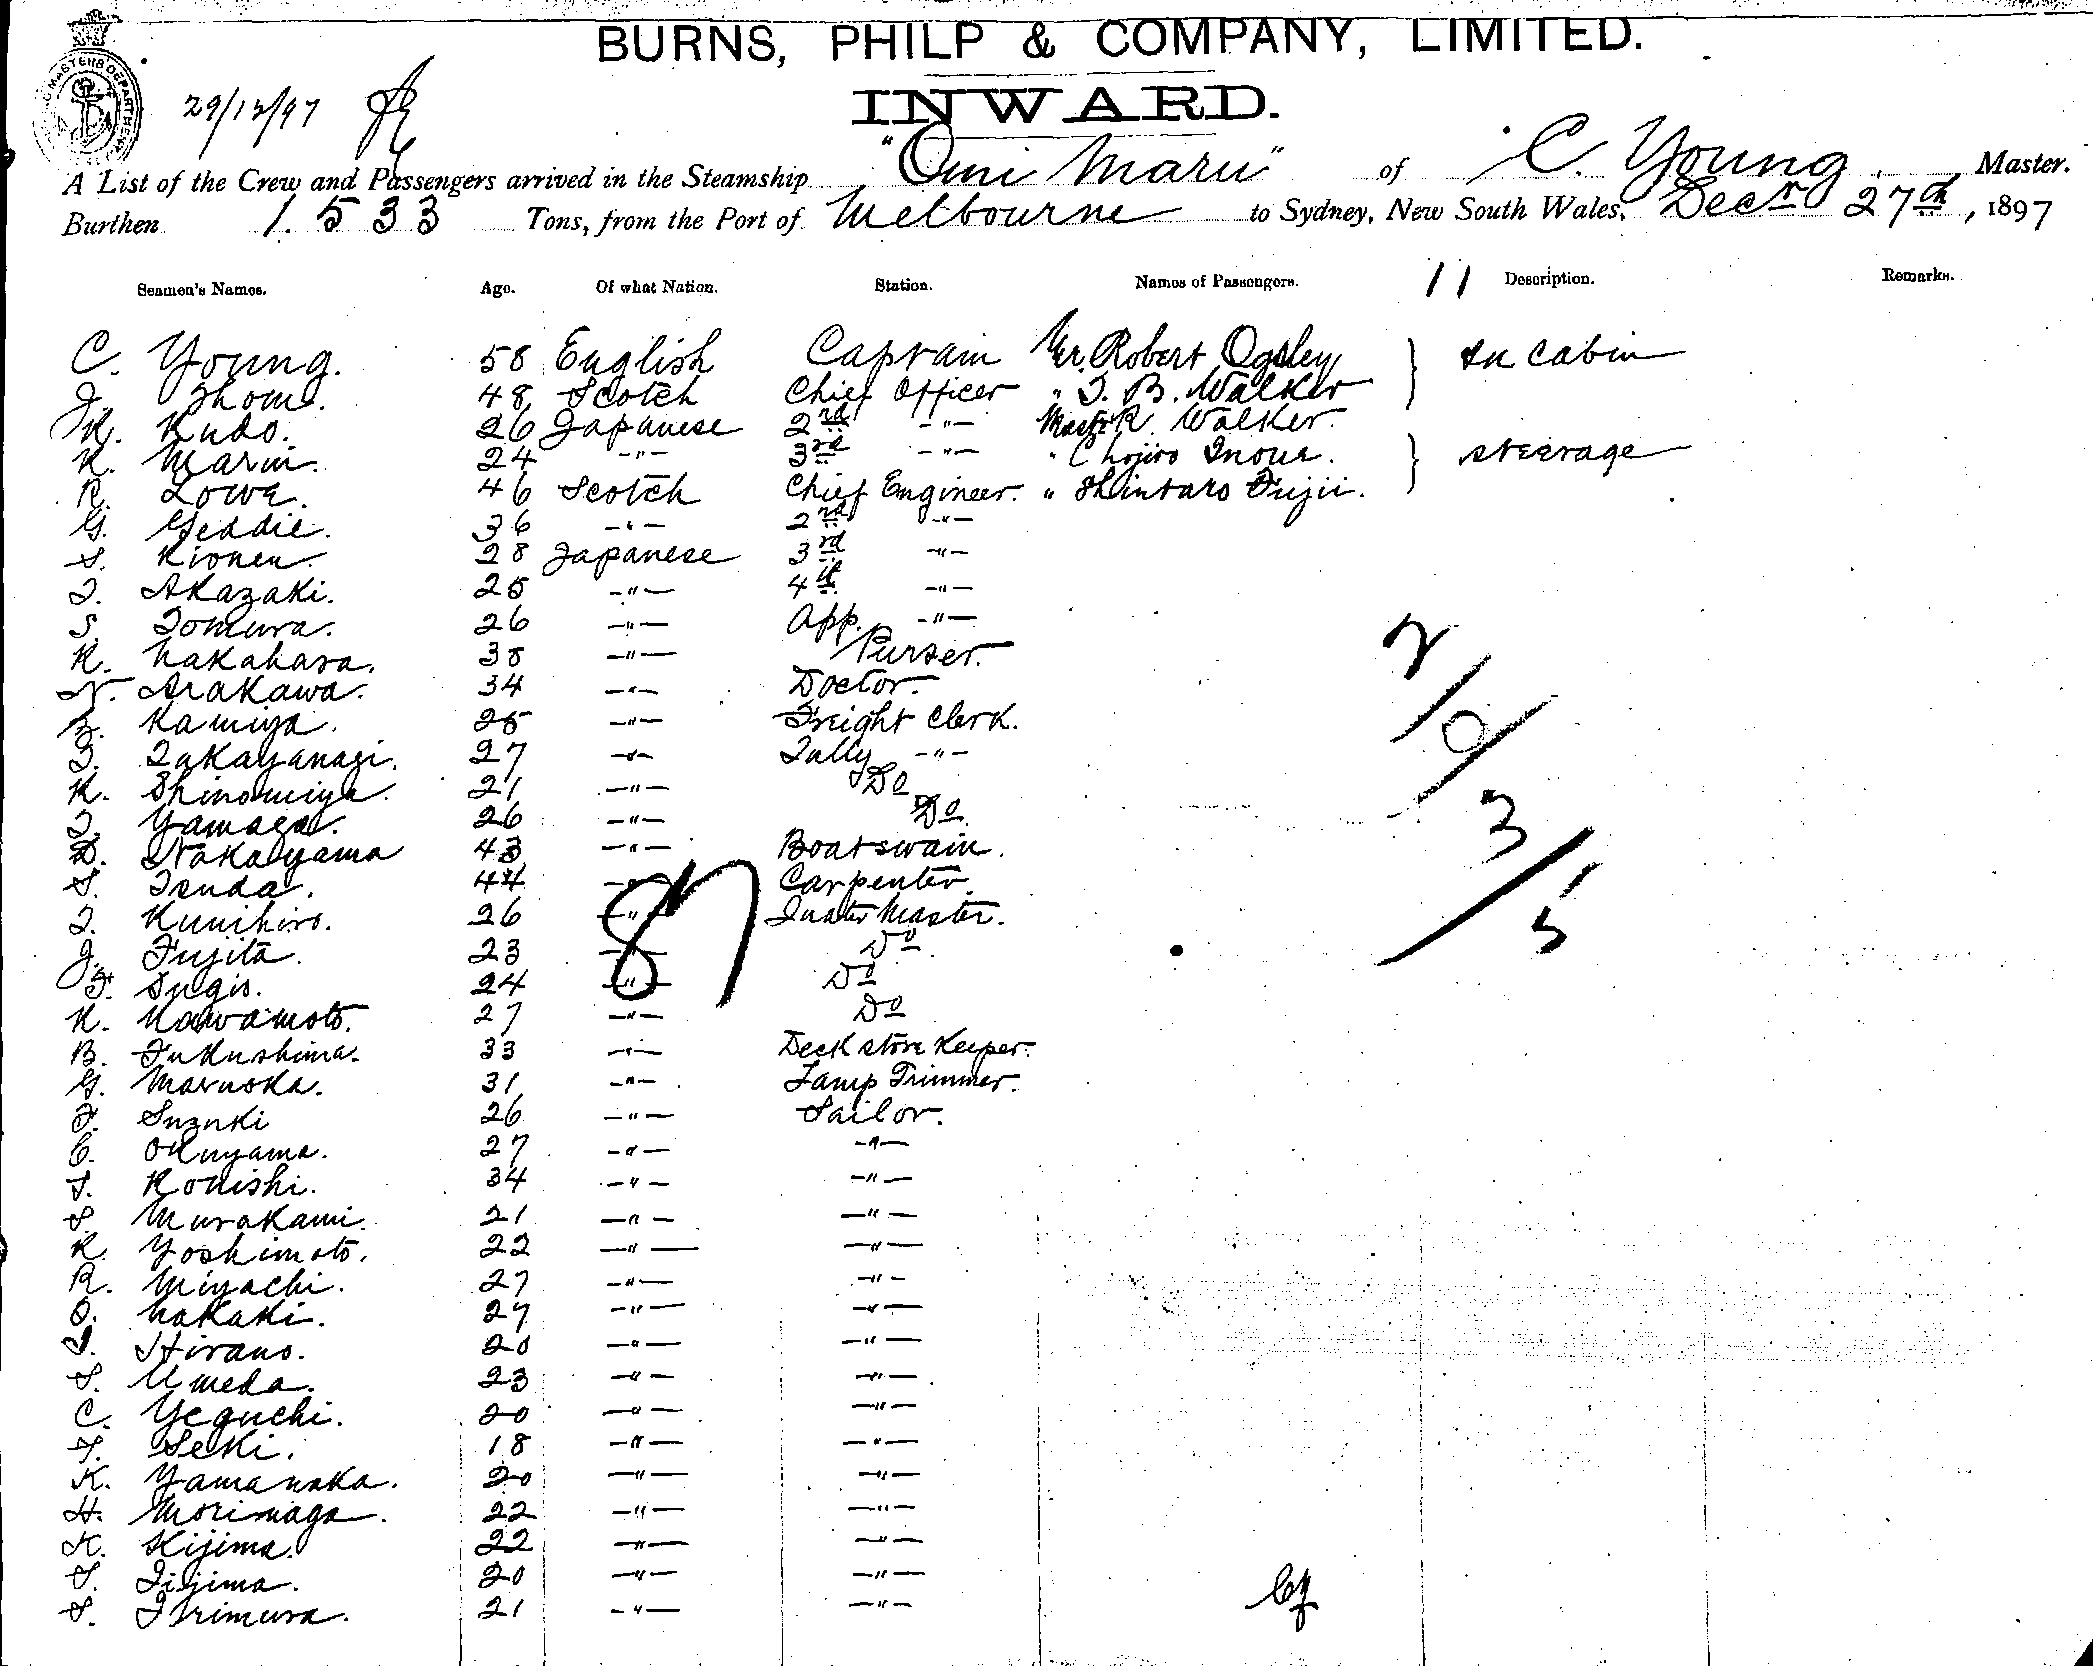 BURNS, PHILP & COMPANY, LIMITED.
INWARD.
29/12/97
A List of the Crew and Passengers arrived in the Steamship "Omi Maru" of C. Young Master.
Burthen 1.533 Tons, from the Port of Melbourne to Sydney, New South Wales, Decr 27th, 1897
Seamen's Names. Age. Of what Nation. Station. Names of Passengers. 11 Description. Remarks.
C. Young. 58 English Captain Mr. Robert Ogsley } In Cabin
J. Thom. 48 Scotch Chief Officer " T. B. Walker
K. Kudo. 26 Japanese 2nd -"- Mastr R. Walker.
K. Marui. 24 -"- 3rd -"- " Chojiro Inoue. } steerage
R. Lowe. 46 Scotch Chief Engineer. " Shintaro Fujii.
G. Geddie. 36 -"- 2nd -"-
S. Kionen. 28 Japanese 3rd -"-
T. Akazaki. 25 -"- 4th -"-
S. Tomura. 26 -"- App. -"-
K. Nakahara. 38 -"- Purser.
N. Arakawa. 34 -"- Doctor.
Z. Kamiya. 25 -"- Freight Clerk.
T. Takayanagi. 27 -"- Tally -"-
K. Shinomiya. 21 -"- Do
T. Yamaga. 26 -"- Do
D. Nakayama 43 -"- Boatswain.
S. Tsuda. 44 -"- Carpenter.
T. Kunihiro. 26 -"- Quater Master.
J. Fujita. 23 -"- Do
F. Sugio. 24 -"- Do
K. Kawamoto. 27 -"- Do
B. Fukushima. 33 -"- Deck store Keeper.
G. Maruoka. 31 -"- Lamp Trimmer.
F. Suzuki 26 -"- Sailor.
C. Okuyama. 27 -"- -"-
T. Konishi. 34 -"- -"-
S. Murakami. 21 -"- -"-
K. Yoshimoto. 22 -"- -"-
R. Miyachi. 27 -"- -"-
O. Nakaki. 27 -"- -"-
I. Hirano. 20 -"- -"-
S. Umeda. 23 -"- -"-
C. Yeguchi. 20 -"- -"-
T. Seki. 18 -"- -"-
K. Yamanaka. 20 -"- -"-
H. Morinaga. 22 -"- -"-
K. Kijima. 22 -"- -"-
S. Iijima. 20 -"- -"-
S. Irimura. 21 -"- -"-
87
2/0/3/15